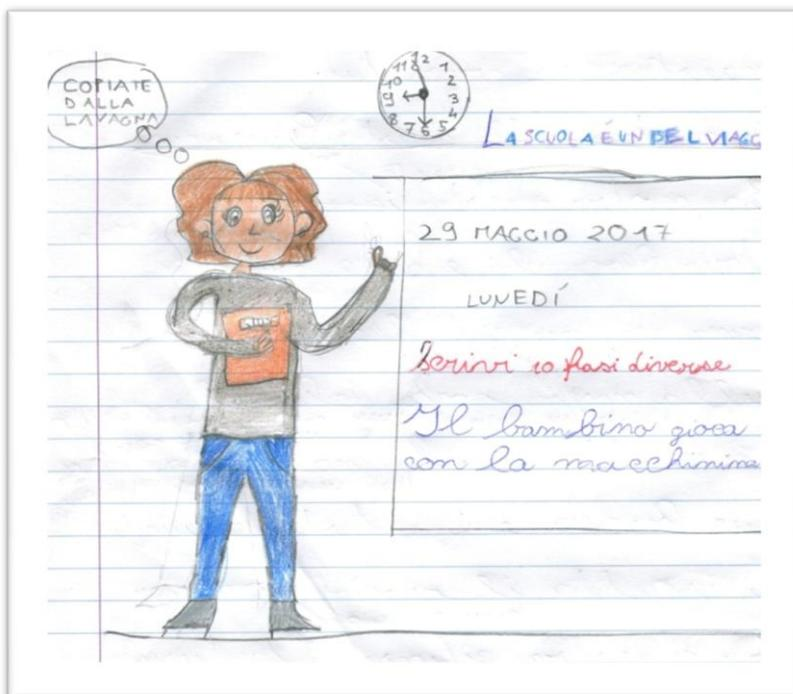 COPIATE
DALLA
LAVAGNA
11 12 1
10 2
9 3
8 4
7 6 5
LA SCUOLA É UN BEL VIAGG
29 MAGGIO 2017
LUNEDÍ
Scrivi 10 frasi diverse
Il bambino gioca
con la macchinina